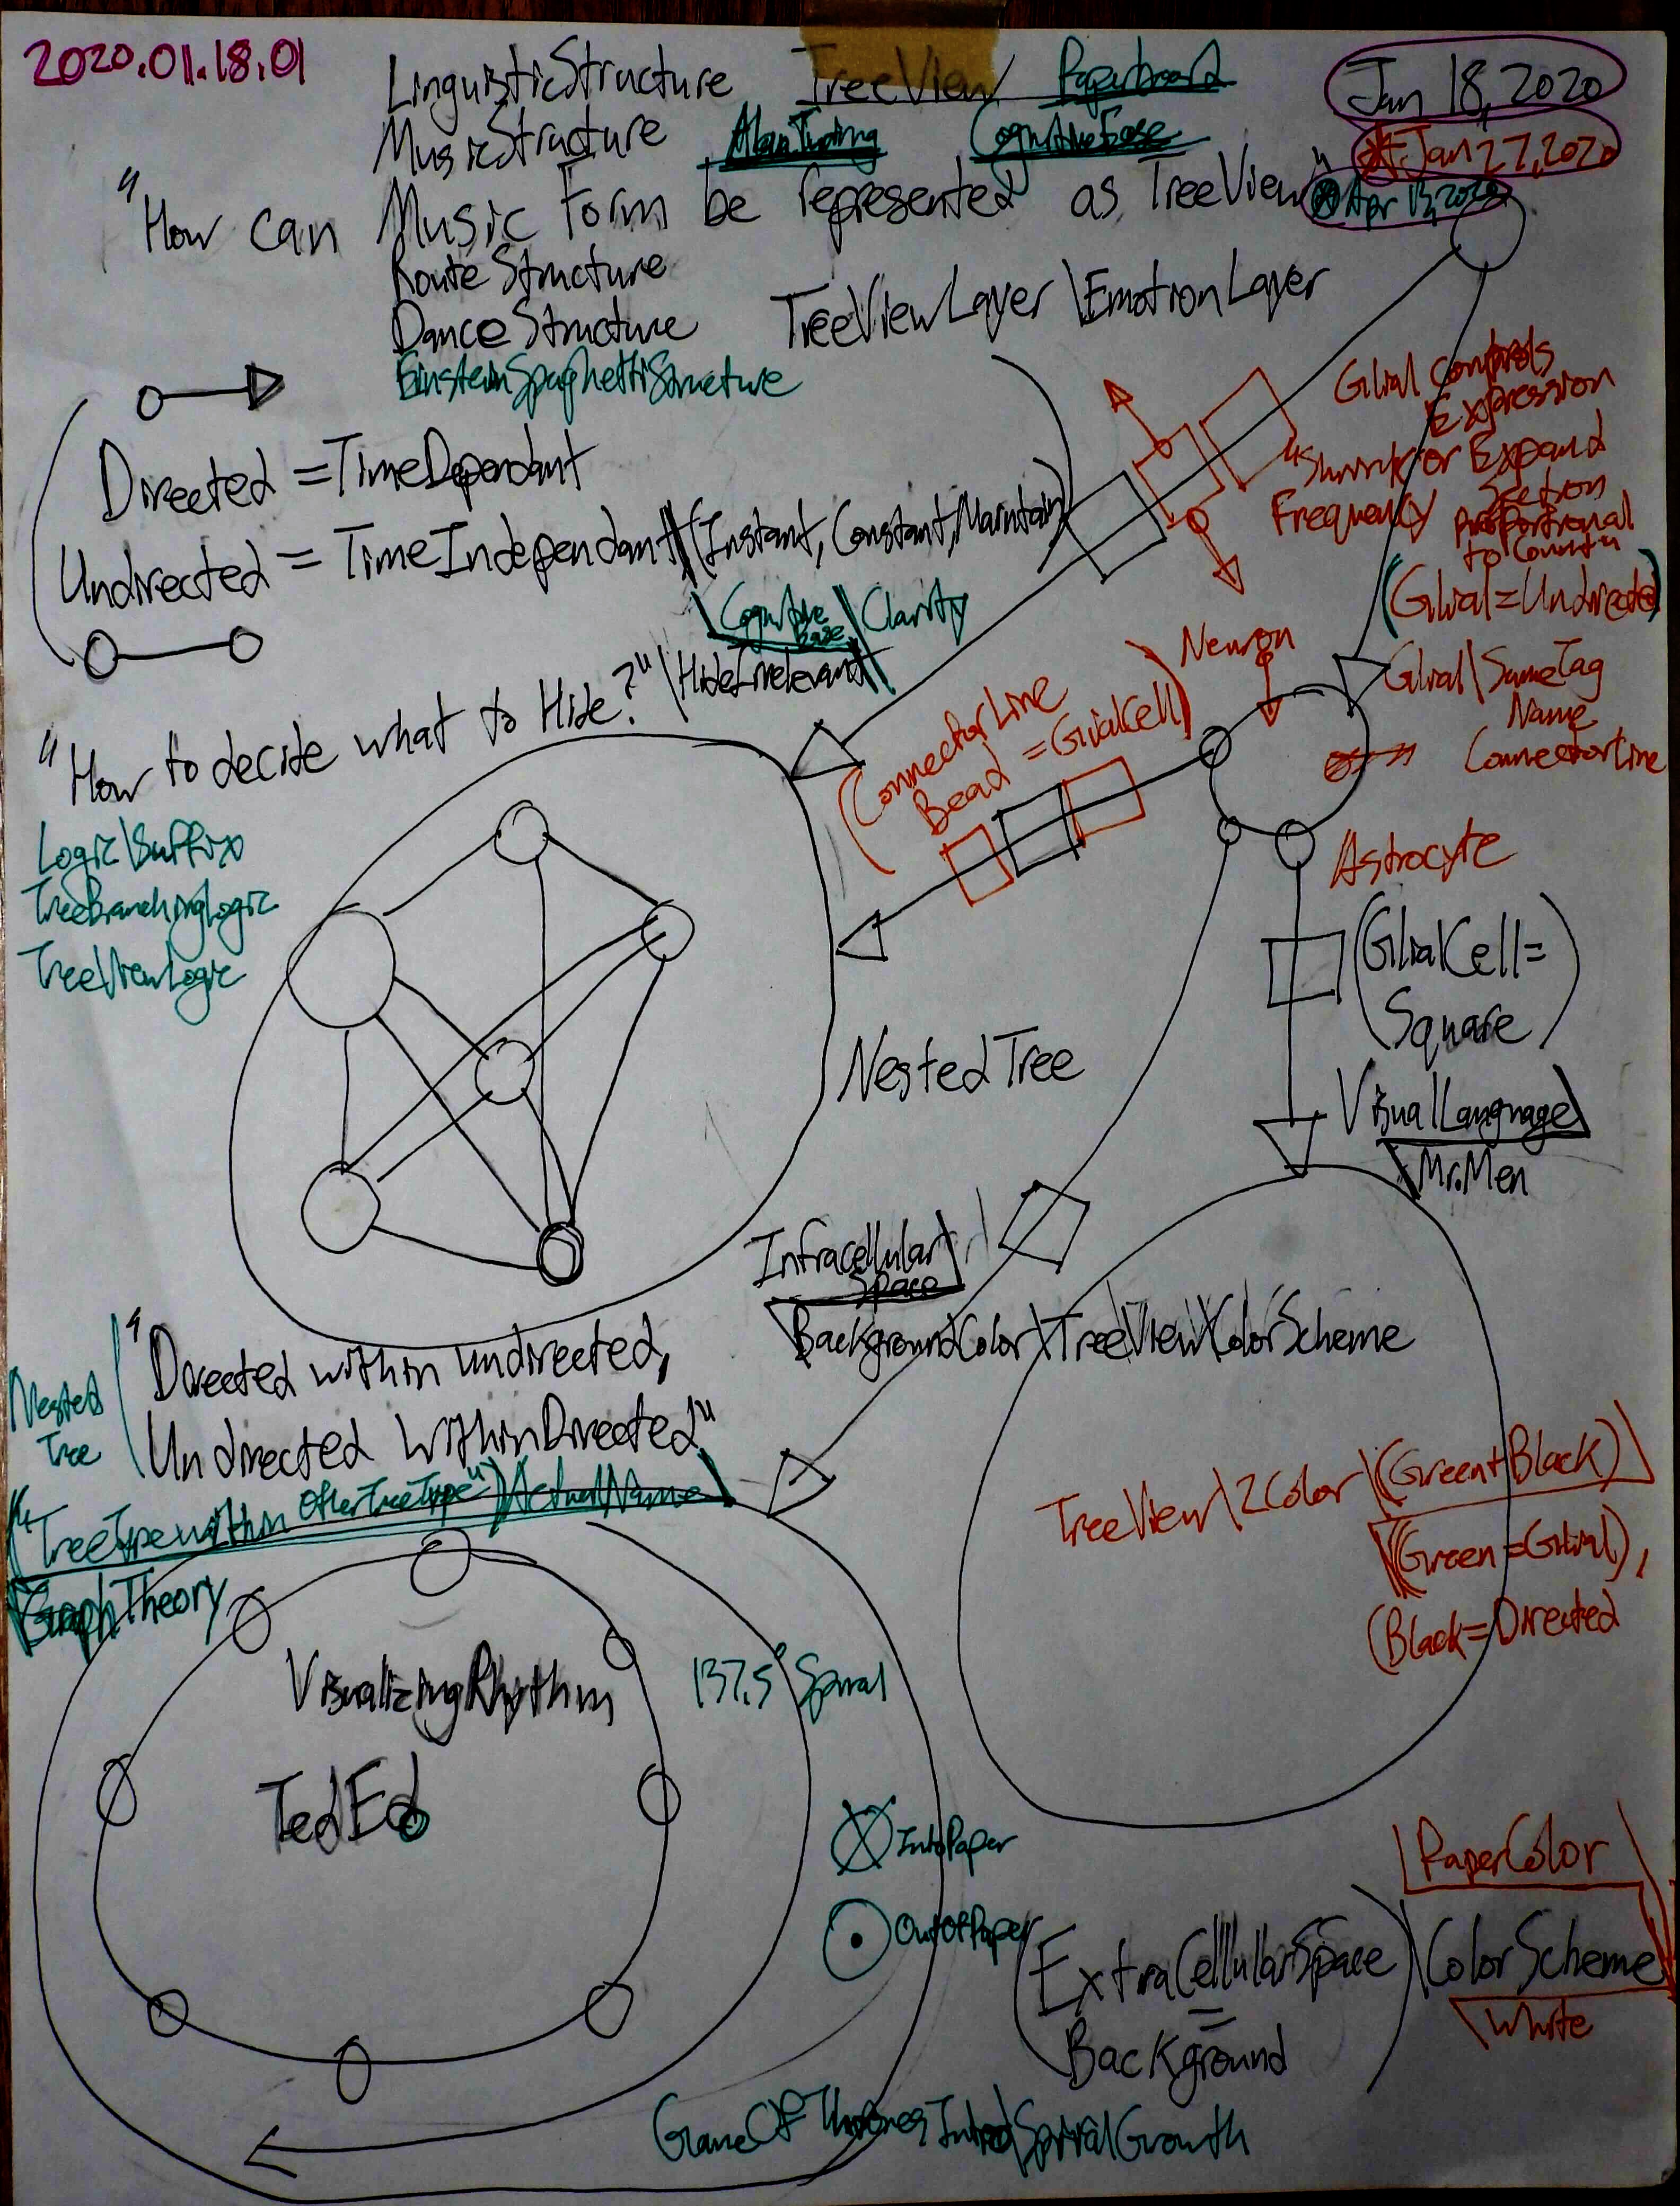 2020.01.18.01
LinguisticStructure TreeView Paperboard
Jan 18, 2020
MusicStructure AlanTuring CognitiveEase
*Jan 27, 2020
"How can Music Form be represented as TreeView"
Apr 13, 2020
RouteStructure
DanceStructure
TreeViewLayer\EmotionLayer
EinsteinSpaghettiStructure
Directed = TimeDependant
Undirected = TimeIndependant\(Instant, Constant, Maintain)
Glial controls
Expression
"Shrink or Expand
Frequency Section
Proportional
to Count"
(Glial=Undirected)
\CognitiveEase\Clarity
"How to decide what to Hide?"\HideIrrelevant\
Neuron
Glial\SameTag
Name
ConnectorLine
(ConnectorLine
Bead =GlialCell)
Logic\Suffix
TreeBranchingLogic
TreeViewLogic
Astrocyte
(GlialCell=
Square)
NestedTree
VisualLanguage\
\Mr.Men
Infracellular\
Space
BackgroundColor\TreeView\ColorScheme
Nested
Tree
"Directed within undirected,
Undirected WithinDirected"
"TreeTypewithin OtherTreeType")ActualName\
GraphTheory
TreeView\2Color\(Green+Black)\
\((Green=Glial),
(Black=Directed
VisualizingRhythm
TedEd
137.5° Spiral
IntoPaper
OutOfPaper
\PaperColor
(ExtraCellularSpace
=
Background)
\ColorScheme
\White
GameOfThronesIntro\SpiralGrowth